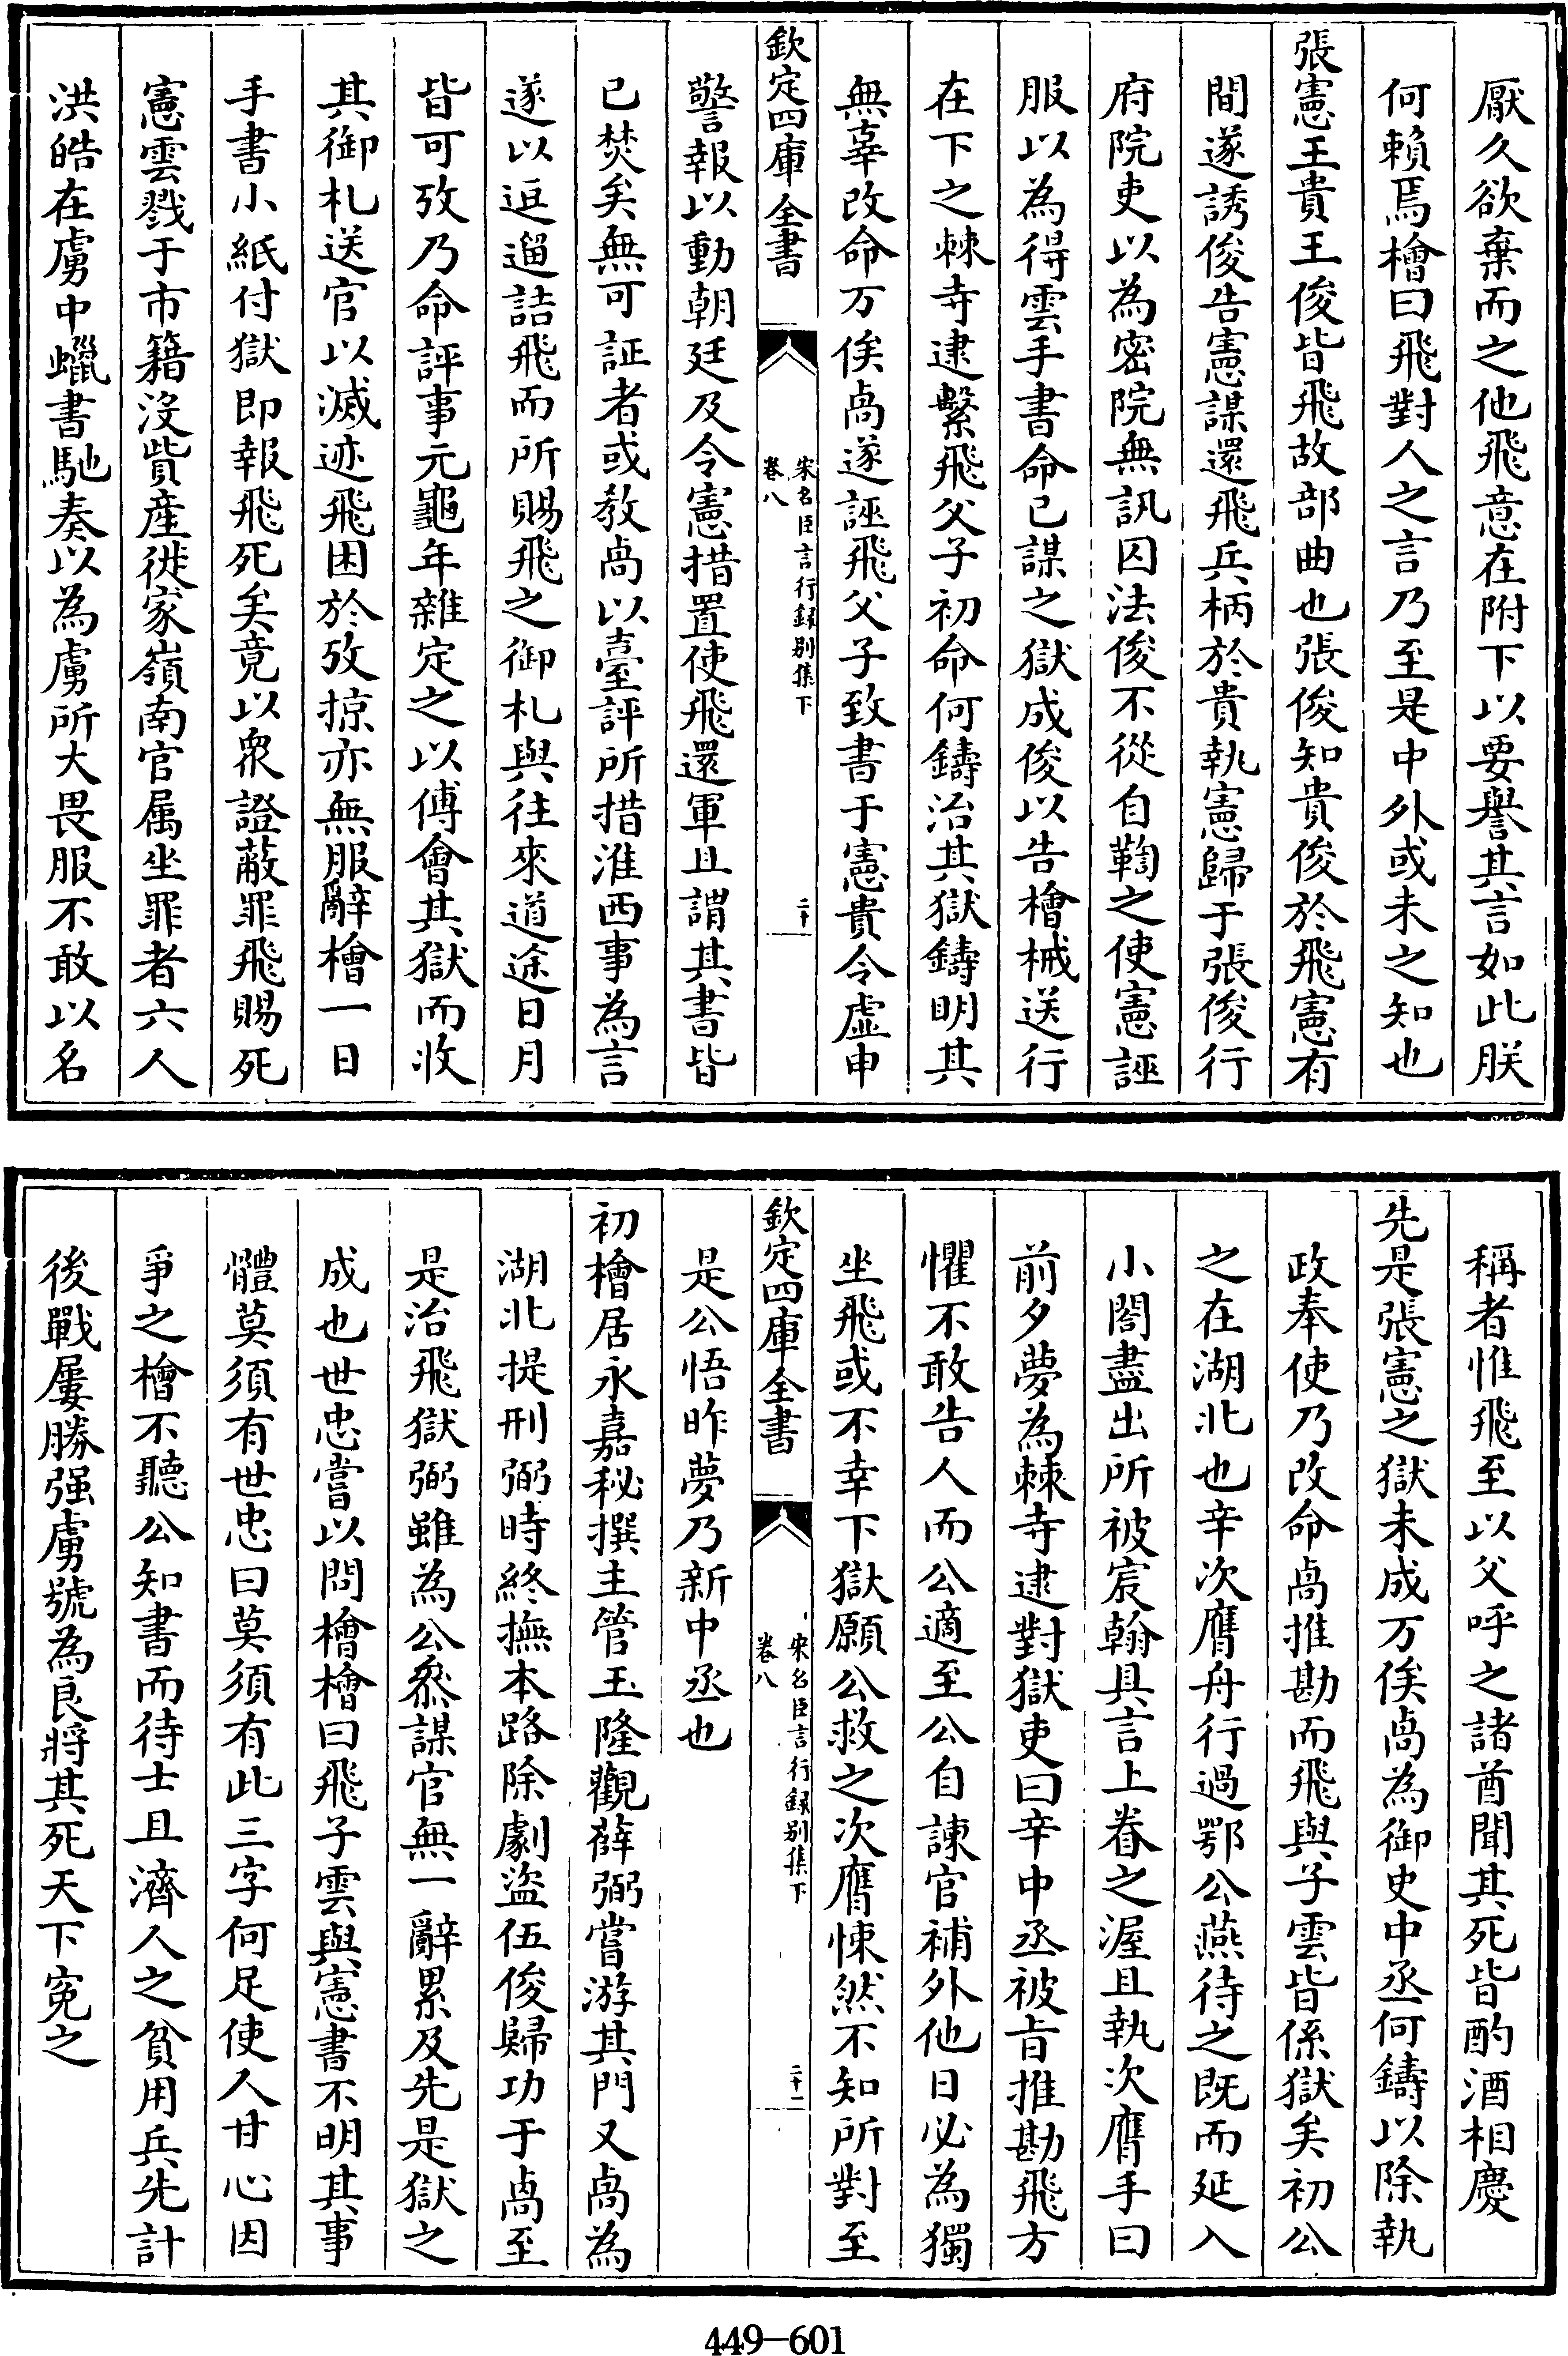 厭久欲棄而之他飛意在附下以要譽其言如此朕
何賴焉檜曰飛對人之言乃至是中外或未之知也
張憲王貴王俊皆飛故部曲也張俊知貴俊於飛憲有
間遂誘俊告憲謀還飛兵柄於貴執憲歸于張俊行
府院吏以為密院無訊囚法俊不從自鞫之使憲誣
服以為得雲手書命已謀之獄成俊以告檜械送行
在下之棘寺逮繫飛父子初命何鑄治其獄鑄明其
無辜改命万俟卨遂誣飛父子致書于憲貴令虛申
欽定四庫全書
宋名臣言行録别集下
卷八
二十
警報以動朝廷及令憲措置使飛還軍且謂其書皆
已焚矣無可証者或教卨以臺評所措淮西事為言
遂以逗遛詰飛而所賜飛之御札與往來道途日月
皆可攷乃命評事元龜年雜定之以傅會其獄而收
其御札送官以滅迹飛困於攷掠亦無服辭檜一日
手書小紙付獄即報飛死矣竟以衆證蔽罪飛賜死
憲雲戮于市籍沒貲產徙家嶺南官属坐罪者六人
洪皓在虜中蠟書馳奏以為虜所大畏服不敢以名
稱者惟飛至以父呼之諸酋聞其死皆酌酒相慶
先是張憲之獄未成万俟卨為御史中丞何鑄以除執
政奉使乃改命卨推勘而飛與子雲皆係獄矣初公
之在湖北也辛次膺舟行過鄂公燕待之既而延入
小閤盡出所被宸翰具言上眷之渥且執次膺手曰
前夕夢為棘寺逮對獄吏曰辛中丞被旨推勘飛方
懼不敢告人而公適至公自諫官補外他日必為獨
坐飛或不幸下獄願公救之次膺悚然不知所對至
欽定四庫全書
宋名臣言行録别集下
卷八
二十一
是公悟昨夢乃新中丞也
初檜居永嘉秘撰主管玉隆觀薛弼嘗游其門又卨為
湖北提刑弼時終撫本路除劇盜伍俊歸功于卨至
是治飛獄弼雖為公叅謀官無一辭累及先是獄之
成也世忠嘗以問檜檜曰飛子雲與憲書不明其事
體莫須有世忠曰莫須有此三字何足使人甘心因
爭之檜不聽公知書而待士且濟人之貧用兵先計
後戰屢勝强虜號為良將其死天下寃之
449—601